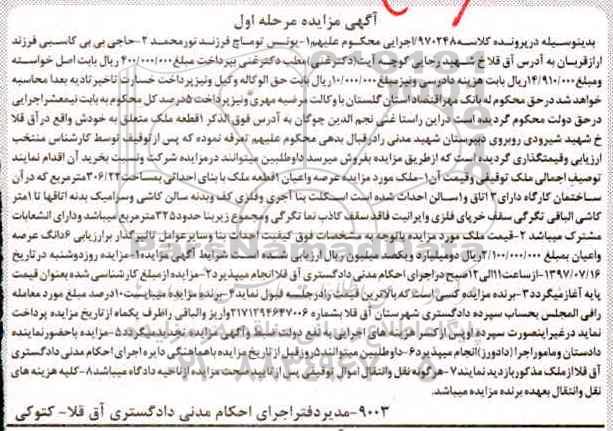 آگهی مزایده مرحله اول
بدینوسیله درپرونده کلاسه۹۷۰۲۴۸/اجرایی محکوم علیهم۱-یونس توماج فرزند نورمحمد ۲-حاجی بی بی کاسبی فرزند
ارازقربان به آدرس آق قلا خ شهید رجایی کوچه آیت(دکترغنی)مطب دکترغنی بپرداخت مبلغ۴۰۰/۰۰۰/۰۰۰ ریال بابت اصل خواسته
ومبلغ۱۴/۹۱۰/۰۰۰ریال بابت هزینه دادرسی ونیزمبلغ۱۰/۰۰۰/۰۰۰ریال بابت حق الوکاله وکیل ونیزپرداخت خسارت تاخیرتادیه بعدا محاسبه
خواهد شد درحق محکوم له بانک مهراقتصاد استان گلستان با وکالت مرضیه مهری ونیزپرداخت ۵درصد کل محکوم به بابت نیمعشراجرایی
درحق دولت محکوم گردیده است دراین راستا غنی نجم الدین چوگان به آدرس فوق الذکر۱قطعه ملک متعلق به خودش واقع درآق قلا
خ شهید شیرودی روبروی دبیرستان شهید مدنی رادرقبال بدهی محکوم علیهم تعرفه نموده که پس ازتوقیف توسط کارشناس منتخب
ارزیابی وقیمتگذاری گردیده است که ازطریق مزایده بفروش میرسد داوطلبین میتوانند درمزایده شرکت ونسبت بخرید آن اقدام نمایند
توصیف اجمالی ملک توقیفی وقیمت آن۱-ملک مورد مزایده عرصه واعیان ۱قطعه ملک با بنای احداثی بمساحت۳۰۶/۲۲مترمربع که در آن
ساختمان کارگاه دارای۳اتاق و۱سالن احداث شده است اسکلت بنا آجری وفلزی کف وبدنه سالن کاشی وسرامیک بدنه اتاقها تا ۱متر
کاشی الباقی تگرگی سقف خرپای فلزی وایرانیت فاقد سقف کاذب نما تگرگی ومجموع زیربنا حدود۳۲۵مترمربع میباشد ودارای انشعابات
مشترک میباشد ۲-قیمت ملک مورد مزایده باتوجه به مشخصات فوق کیفیت احداث بنا وسایرعوامل تاثیرگذار برارزیابی ۶دانگ عرصه
واعیان بمبلغ ۲/۱۰۰/۰۰۰/۰۰۰ریال دومیلیارد ویکصد میلیون ریال ارزیابی شده است شرایط آگهی مزایده۱-مزایده روزدوشنبه در تاریخ
۱۳۹۷/۰۷/۱۶-ازساعت۱۱الی۱۲صبح دراجرای احکام مدنی دادگستری آق قلاانجام میپذیرد۲-مزایده ازمبلغ کارشناسی شده بعنوان قیمت
پایه آغازمیگردد۳-برنده مزایده کسی است که بالاترین قیمت رادرجلسه قبول نماید۴-برنده مزایده میبایست۱۰درصد مبلغ مورد معامله
رافی المجلس بحساب سپرده دادگستری شهرستان آق قلا بشماره ۲۱۷۱۲۹۴۶۴۷۰۰۶واریز والباقی راظرف یکماه ازتاریخ مزایده پرداخت
نماید درغیراینصورت سپرده اوپس ازکسر هزینه های اجرایی به نفع دولت ضبط وآگهی مزایده تجدیدمیگردد ۵-مزایده باحضورنماینده
دادستان وماموراجرا(دادورز)انجام میپذیرد۶-داوطلبین میتوانند۵روزقبل ازتاریخ مزایده باهماهنگی دایره اجرای احکام مدنی دادگستری
آق قلاازملک مذکوربازدید نمایند۷-هرگونه نقل وانتقال اموال توقیفی پس ازتایید صحت مزایده ازناحیه دادگاه میباشد۸-کلیه هزینه های
نقل وانتقال بعهده برنده مزایده میباشد.
۹۰۰۳-مدیردفتراجرای احکام مدنی دادگستری آق قلا- کتوکی